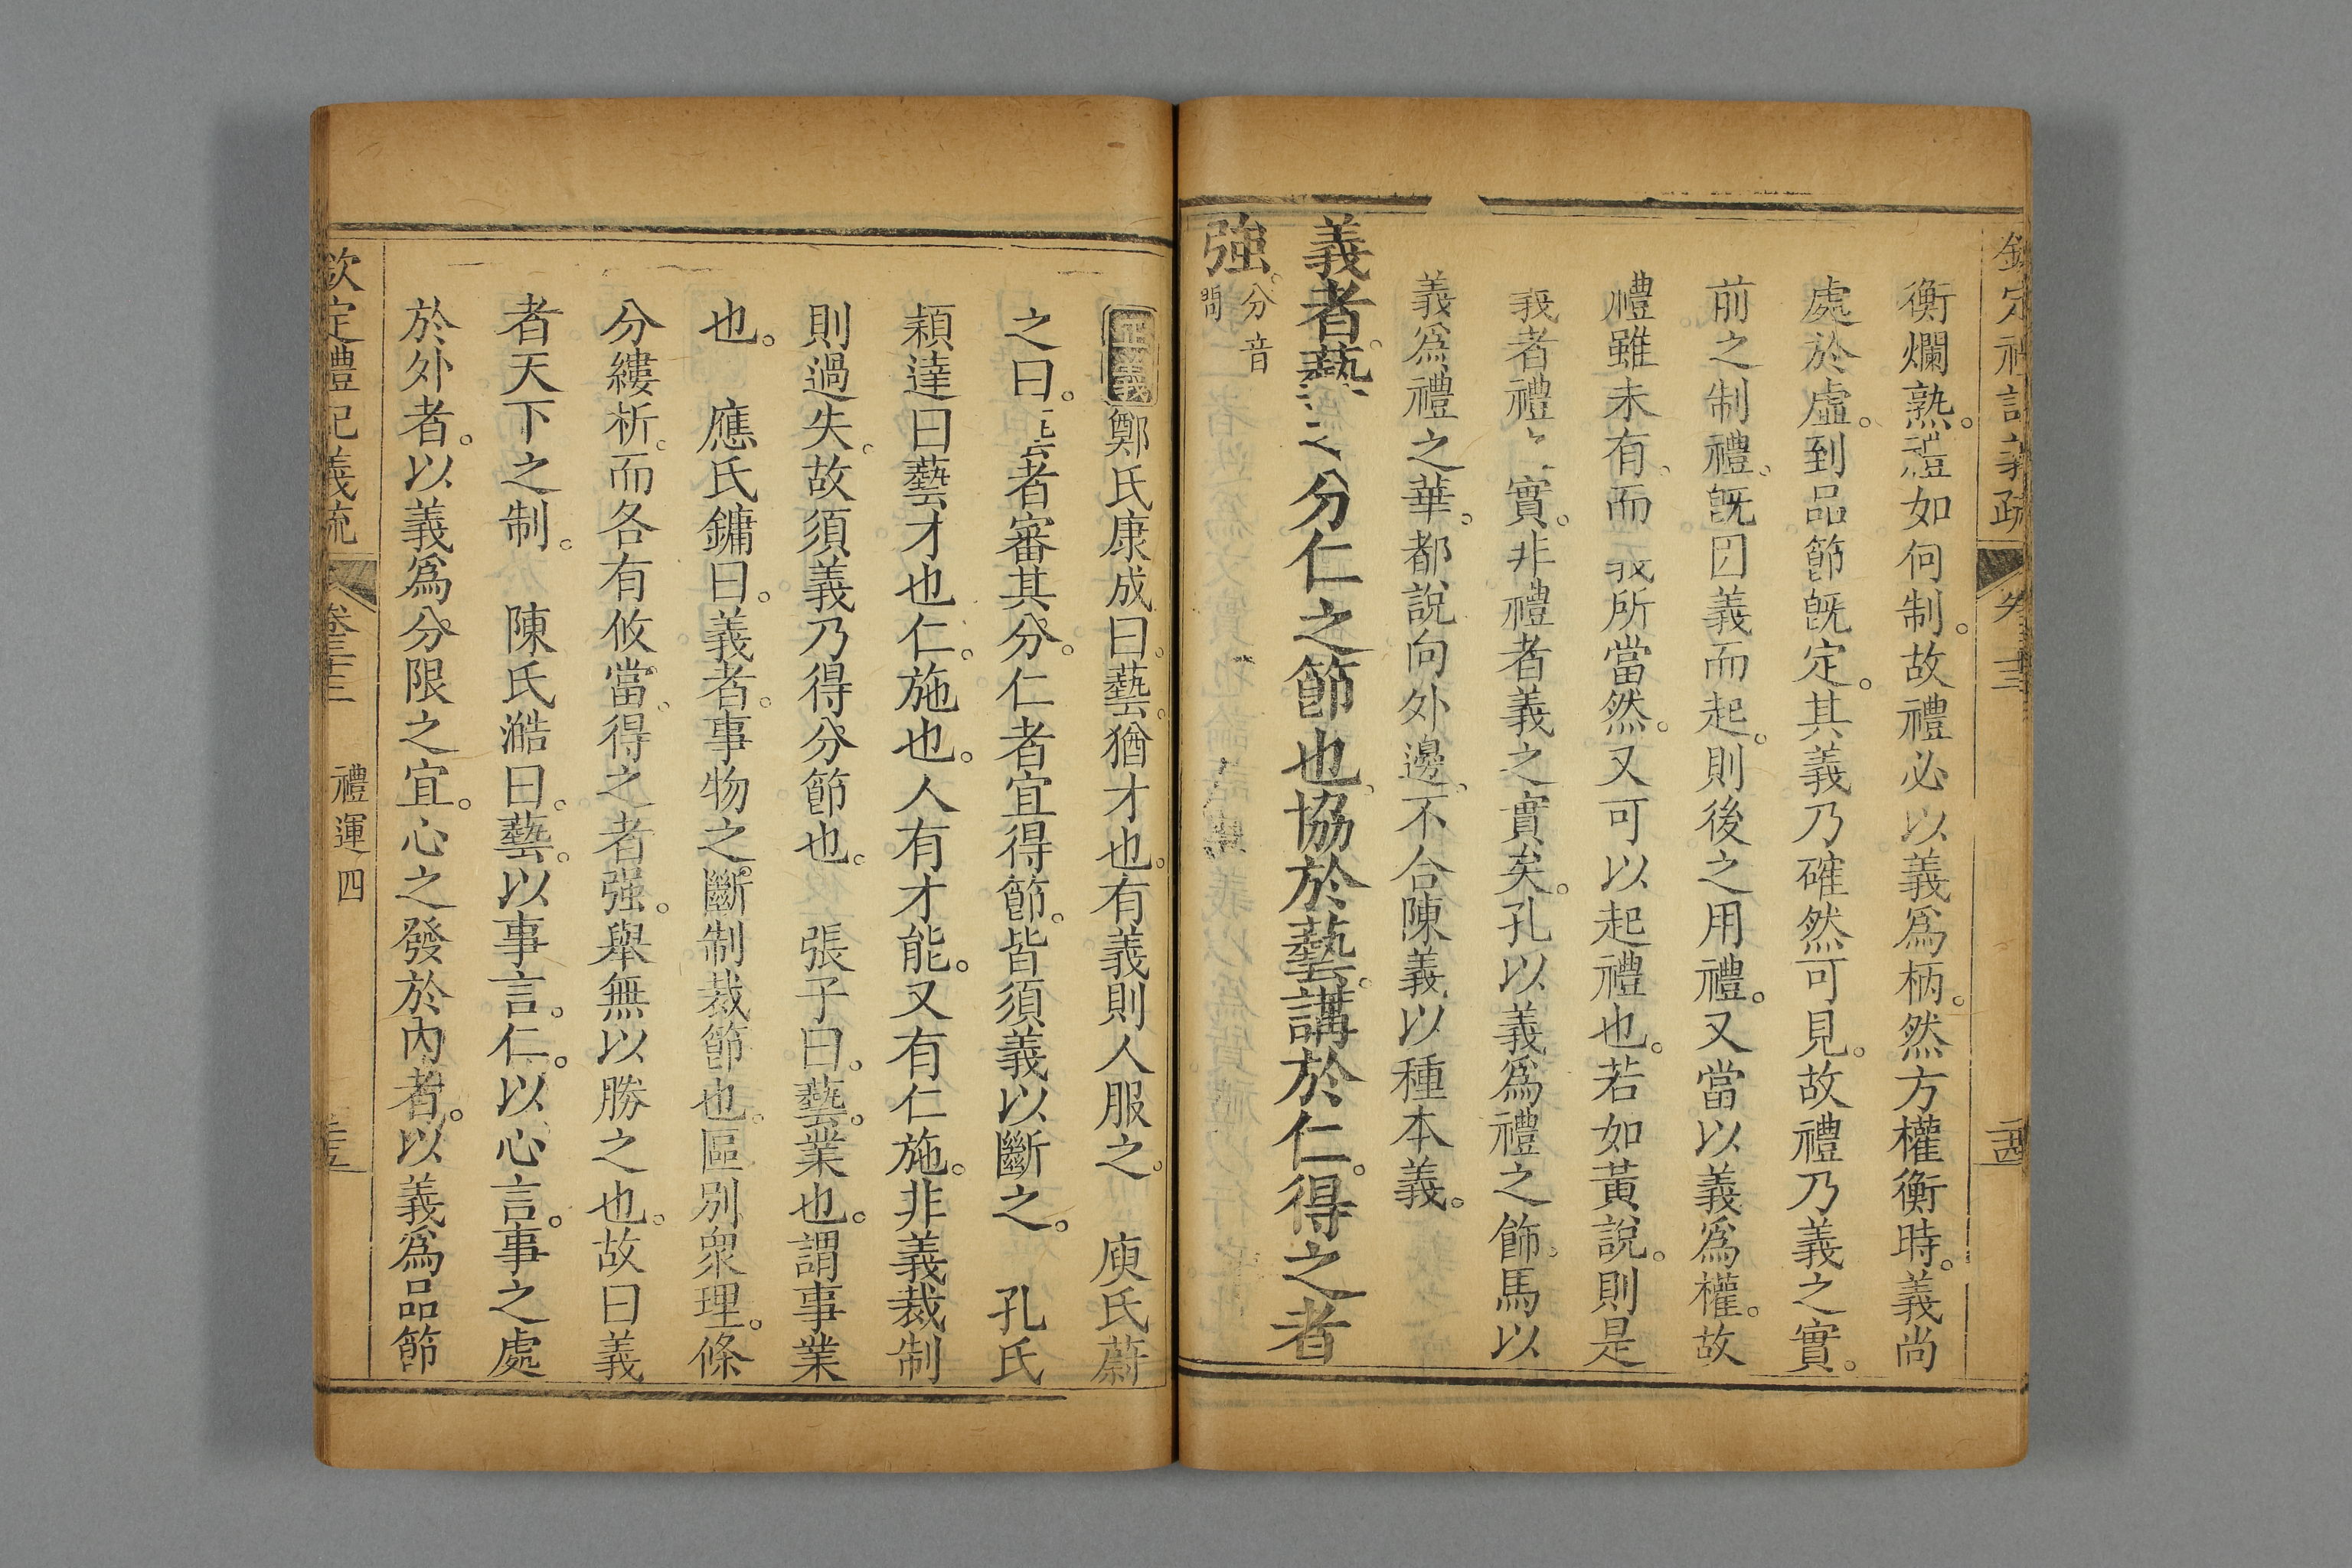 衡爛熟。禮如何制。故禮必以義爲柄。然方權衡時。義尚
處於虛。到品節旣定。其義乃確然可見。故禮乃義之實。
前之制禮。旣因義而起。則後之用禮。又當以義爲權。故
禮雖未有。而義所當然。又可以起禮也。若如黃說。則是
義者禮之實。非禮者義之實矣。孔以義爲禮之飾。馬以
義爲禮之華。都說向外邊。不合陳義以種本義。
義者。藝之分仁之節也。協於藝。講於仁。得之者
強。分音
問
正義鄭氏康成曰。藝。猶才也。有義則人服之。 庾氏蔚
之曰。藝者審其分。仁者宜得節。皆須義以斷之。 孔氏
穎達曰藝才也仁。施也。人有才能。又有仁施。非義裁制
則過失。故須義乃得分節也。 張子曰。藝。業也。謂事業
也。 應氏鏞曰。義者。事物之斷制裁節也。區別衆理。條
分縷析。而各有攸當。得之者强。舉無以勝之也。故曰義
者天下之制。 陳氏澔曰。藝。以事言。仁。以心言。事之處
於外者。以義爲分限之宜。心之發於內者。以義爲品節
欽定禮記義疏 卷三十三 禮運四